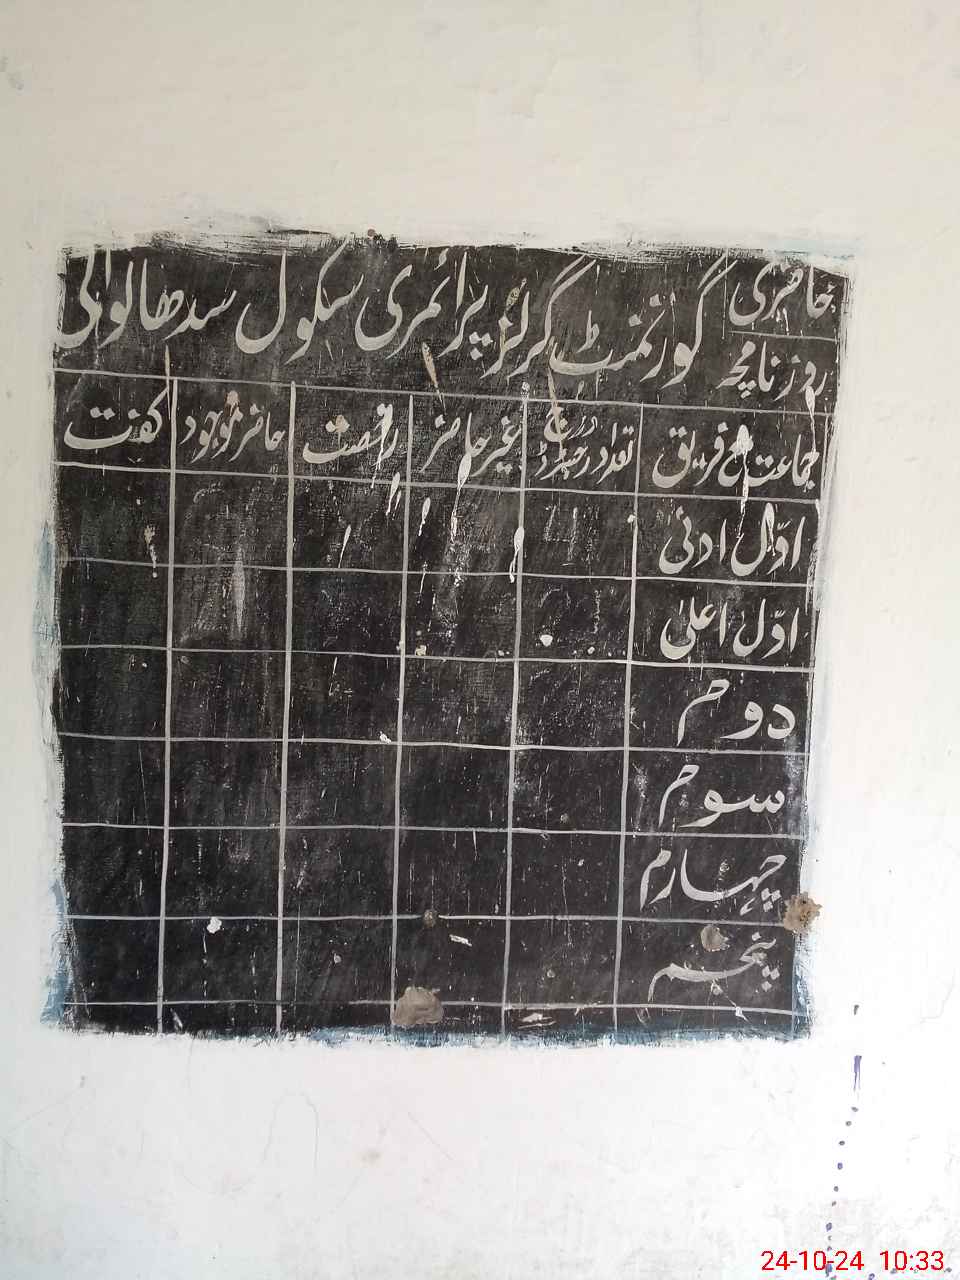 حاضری
روزنامچہ
گورنمنٹ گرلز پرائمری سکول سدھانوالی
جماعت مع فریق تعداد درج رجسٹرڈ غیر حاضر رخصت حاضر موجود کیفیت
اوّل ادنیٰ
اوّل اعلیٰ
دوم
سوم
چہارم
پنجم
24-10-24 10:33